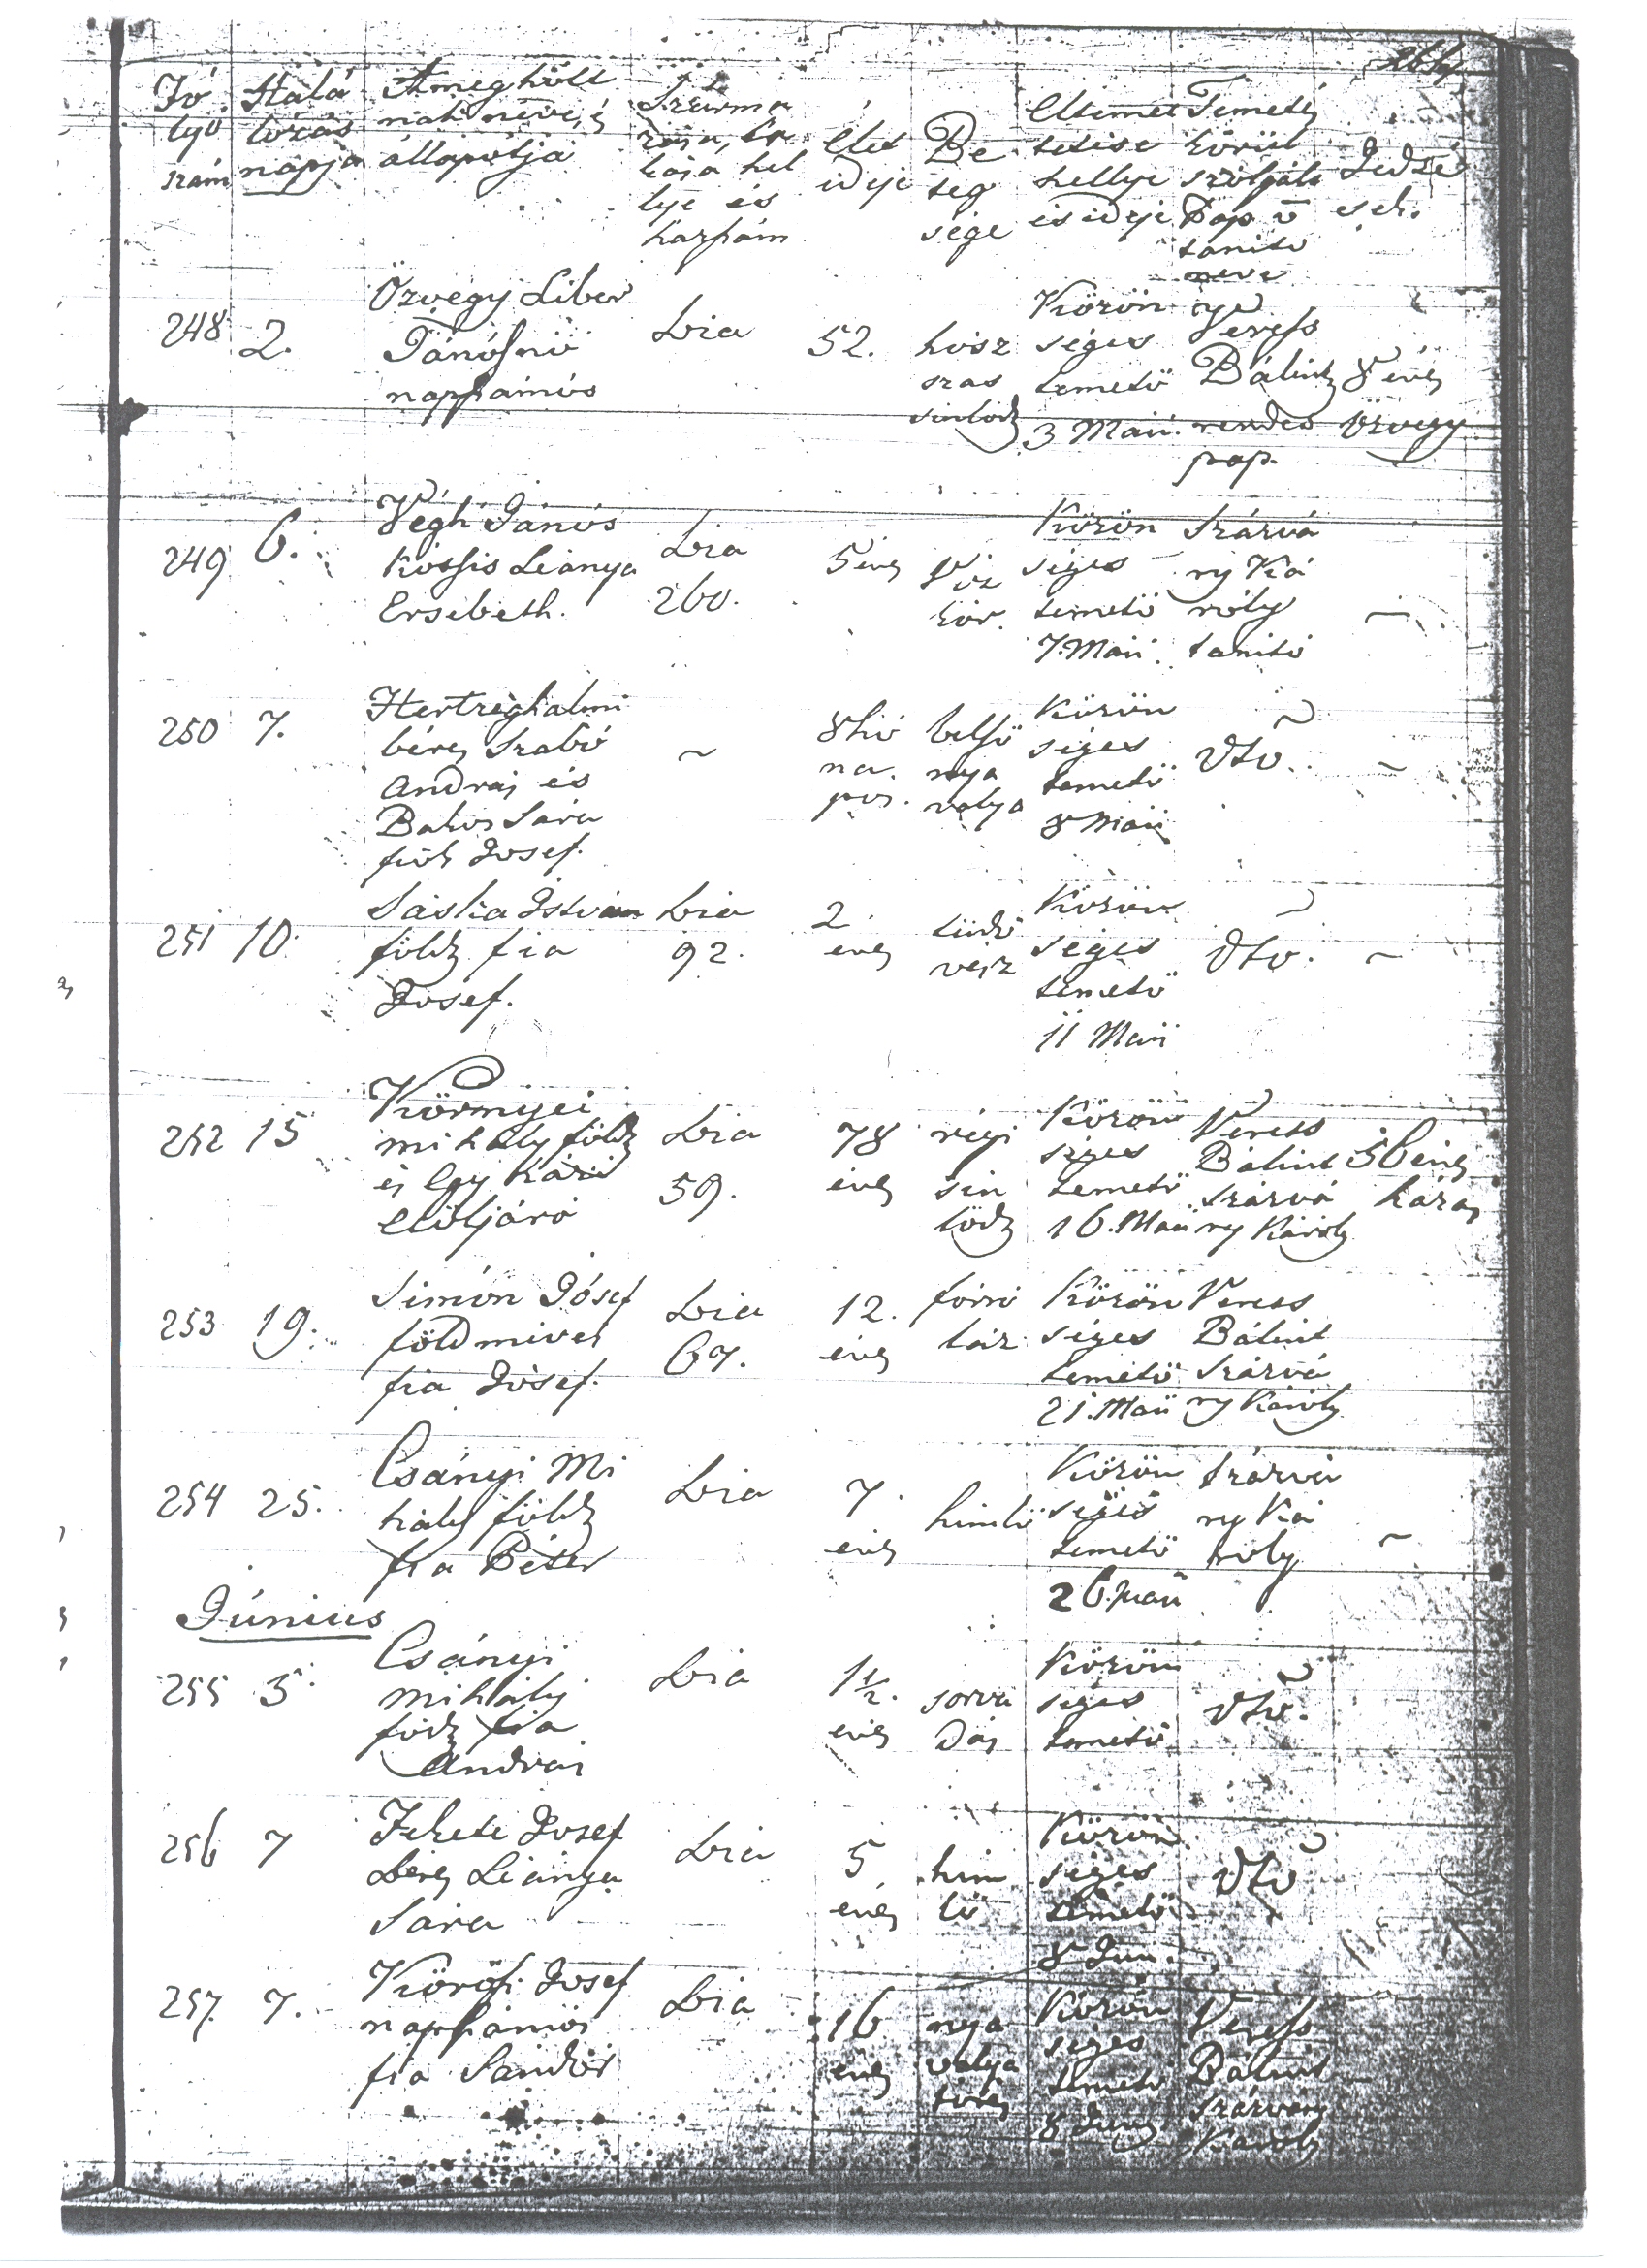 Fó
lyó
szám
Halá
lozás
napja
A meghólt
nak neve, s
állapotja
Szárma
zása, la
kása hel
lye és
házszám
élet
ideje
Be
teg
sége
Eltemet
tetése
hellye
és ideje
Temetés
körül
szolgáló
Pap v
tanító
neve
Jedzé
sek.
248
2.
Özvegy Liber
Jánósné
napszámós
Bia
52.
hosz
szas
sinlődz
Közön
séges
temető
3 Maii.
Veress
Bálint
rendes
pap.
8 éves
özvegy
249
6.
Végh János
Leánya
Ersébeth.
Bia
260.
5 éves
Víz
kór.
Közön
séges
temető
7. Maii.
Szárvá
ny Ká
róly
tanitó
—
250
7.
Hertzeghalmi
béres Szabó
András és
Bakos Sára
fiok Josef.
~
8 hó
na
pos.
belső
nya
valya
Közön
séges
temető
8 Maii
~
251
10.
Sáska István
földz fia
Josef.
Bia
92.
2
éves
tüdő
vész
Közön
séges
temető
11 Maii
~
252
15
Környei
mihály földz
és Egyházi
elöljáró
Bia
59.
78
éves
régi
sin
lődz
Közön
séges
temető
16. Maii
Veress
Bálint
Szárvá
ny Károly
56 éves
házas
253
19.
Simón Jósef
földmives
fia Jósef.
Bia
67.
12.
éves
forró
láz
Közön
séges
temető
21. Maii
Veress
Bálint
Szárvá
ny Károly
254
25.
Csányi Mi
hály földz
fia Péter
Bia
7.
éves
himlő
Közön
séges
temető
26. maii
Szárvá
ny Ká
roly
~
Június
255
5.
Csányi
mihály
födz fia
András
Bia
1½.
éves
sorva
dás
Közön
séges
temető
256
7
Fekete Josef
béres Leánya
Sára
Bia
5
éves
him
lő
Közön
séges
temető
8 Jun.
257.
7.
Körösi Josef
napszámós
fia Sandór
Bia
16
éves
nya
valya
törés
Közön
séges
temető
8 Juny
Veress
Bálint
Szárvány
Károly